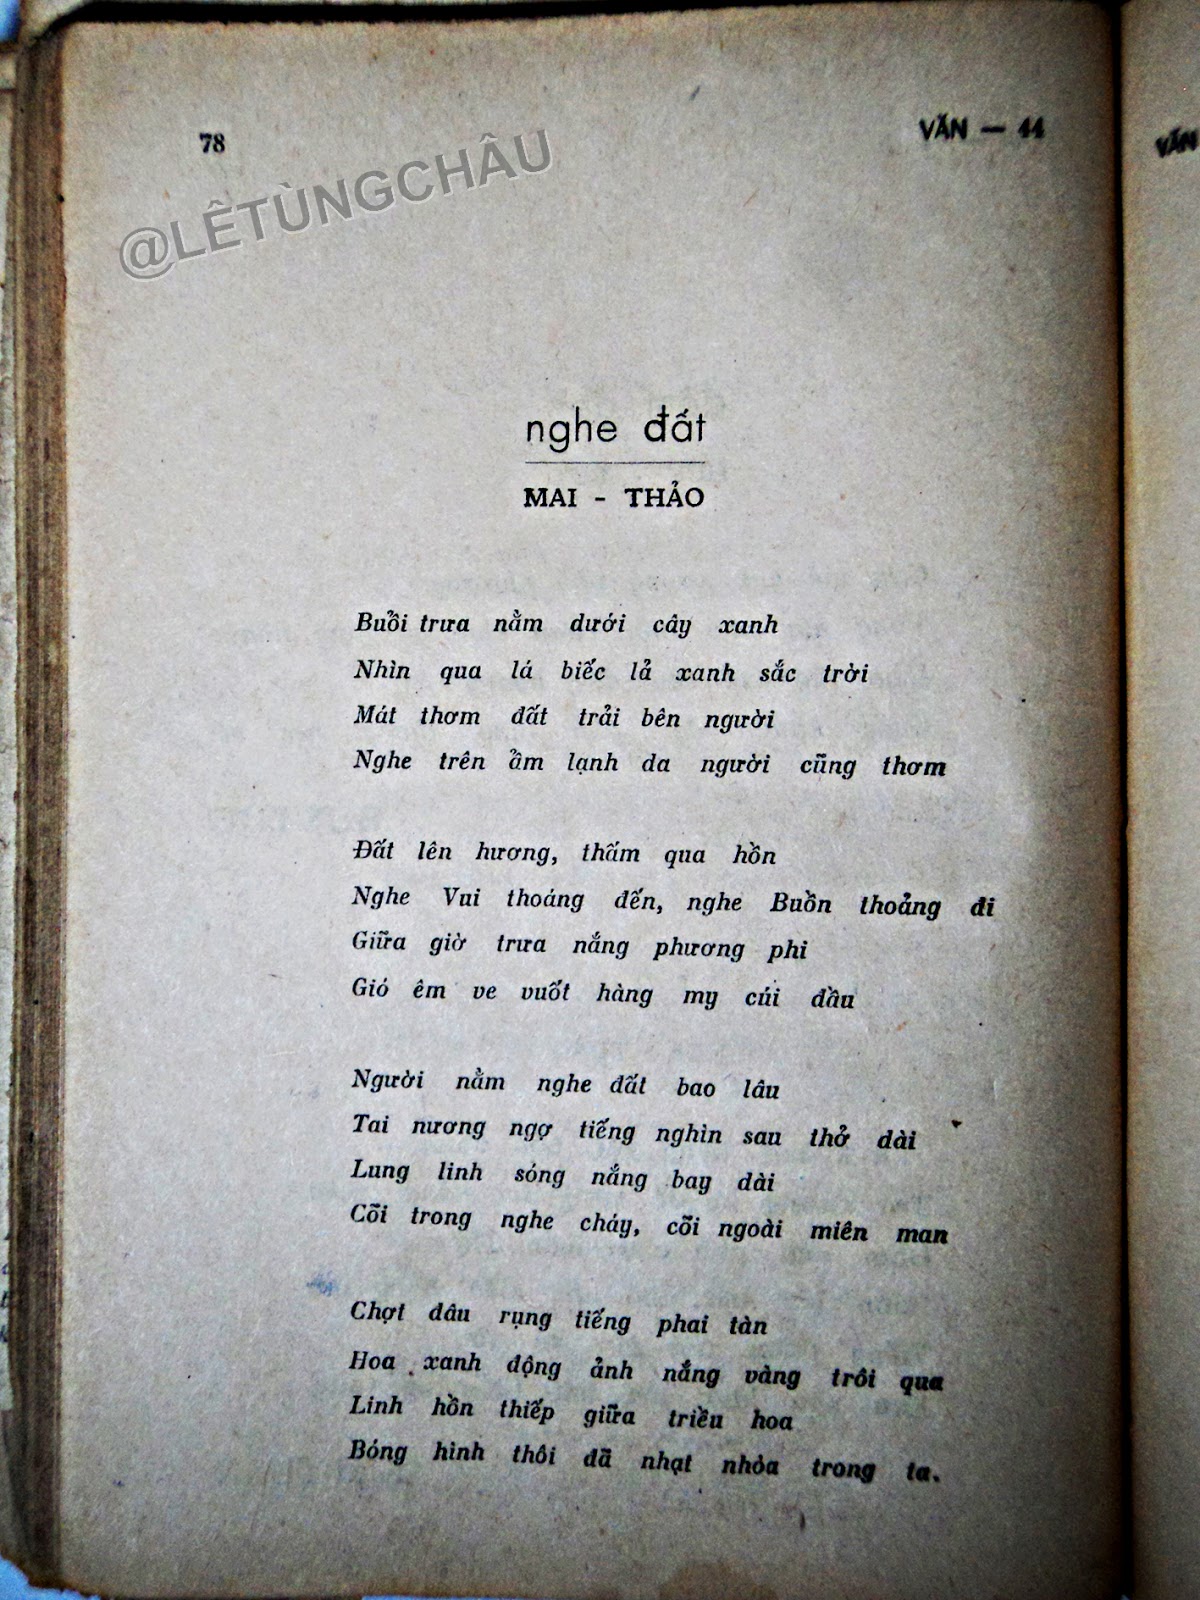 78
VĂN — 44
VĂN
@LÊTÙNGCHÂU
nghe đất
MAI - THẢO
Buổi trưa nằm dưới cây xanh
Nhìn qua lá biếc lả xanh sắc trời
Mát thơm đất trải bên người
Nghe trên ẩm lạnh da người cũng thơm
Đất lên hương, thấm qua hồn
Nghe Vui thoáng đến, nghe Buồn thoảng đi
Giữa giờ trưa nắng phương phi
Gió êm ve vuốt hàng my cúi đầu
Người nằm nghe đất bao lâu
Tai nương ngợ tiếng nghìn sau thở dài
Lung linh sóng nắng bay dài
Cõi trong nghe cháy, cõi ngoài miên man
Chợt đâu rụng tiếng phai tàn
Hoa xanh động ảnh nắng vàng trôi qua
Linh hồn thiếp giữa triều hoa
Bóng hình thôi đã nhạt nhòa trong ta.